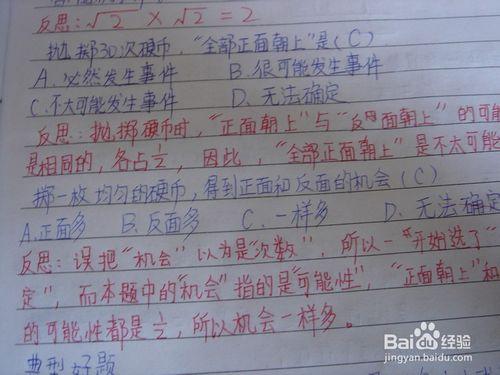 反思：√2 × √2 = 2
抛掷30次硬币，“全部正面朝上”是（C）
A. 必然发生事件 B. 很可能发生事件
C. 不大可能发生事件 D. 无法确定
反思：抛掷硬币时，“正面朝上”与“反面朝上”的可能
是相同的，各占1/2，因此，“全部正面朝上”是不太可能
掷一枚均匀的硬币，得到正面和反面的机会（C）
A. 正面多 B. 反面多 C. 一样多 D. 无法确定
反思：误把“机会”以为是“次数”，所以一开始选了“
定”，而本题中的“机会”指的是“可能性”，“正面朝上”和
的可能性都是1/2，所以机会一样多。
典型好题
Bai du 经验
jingyan.baidu.com